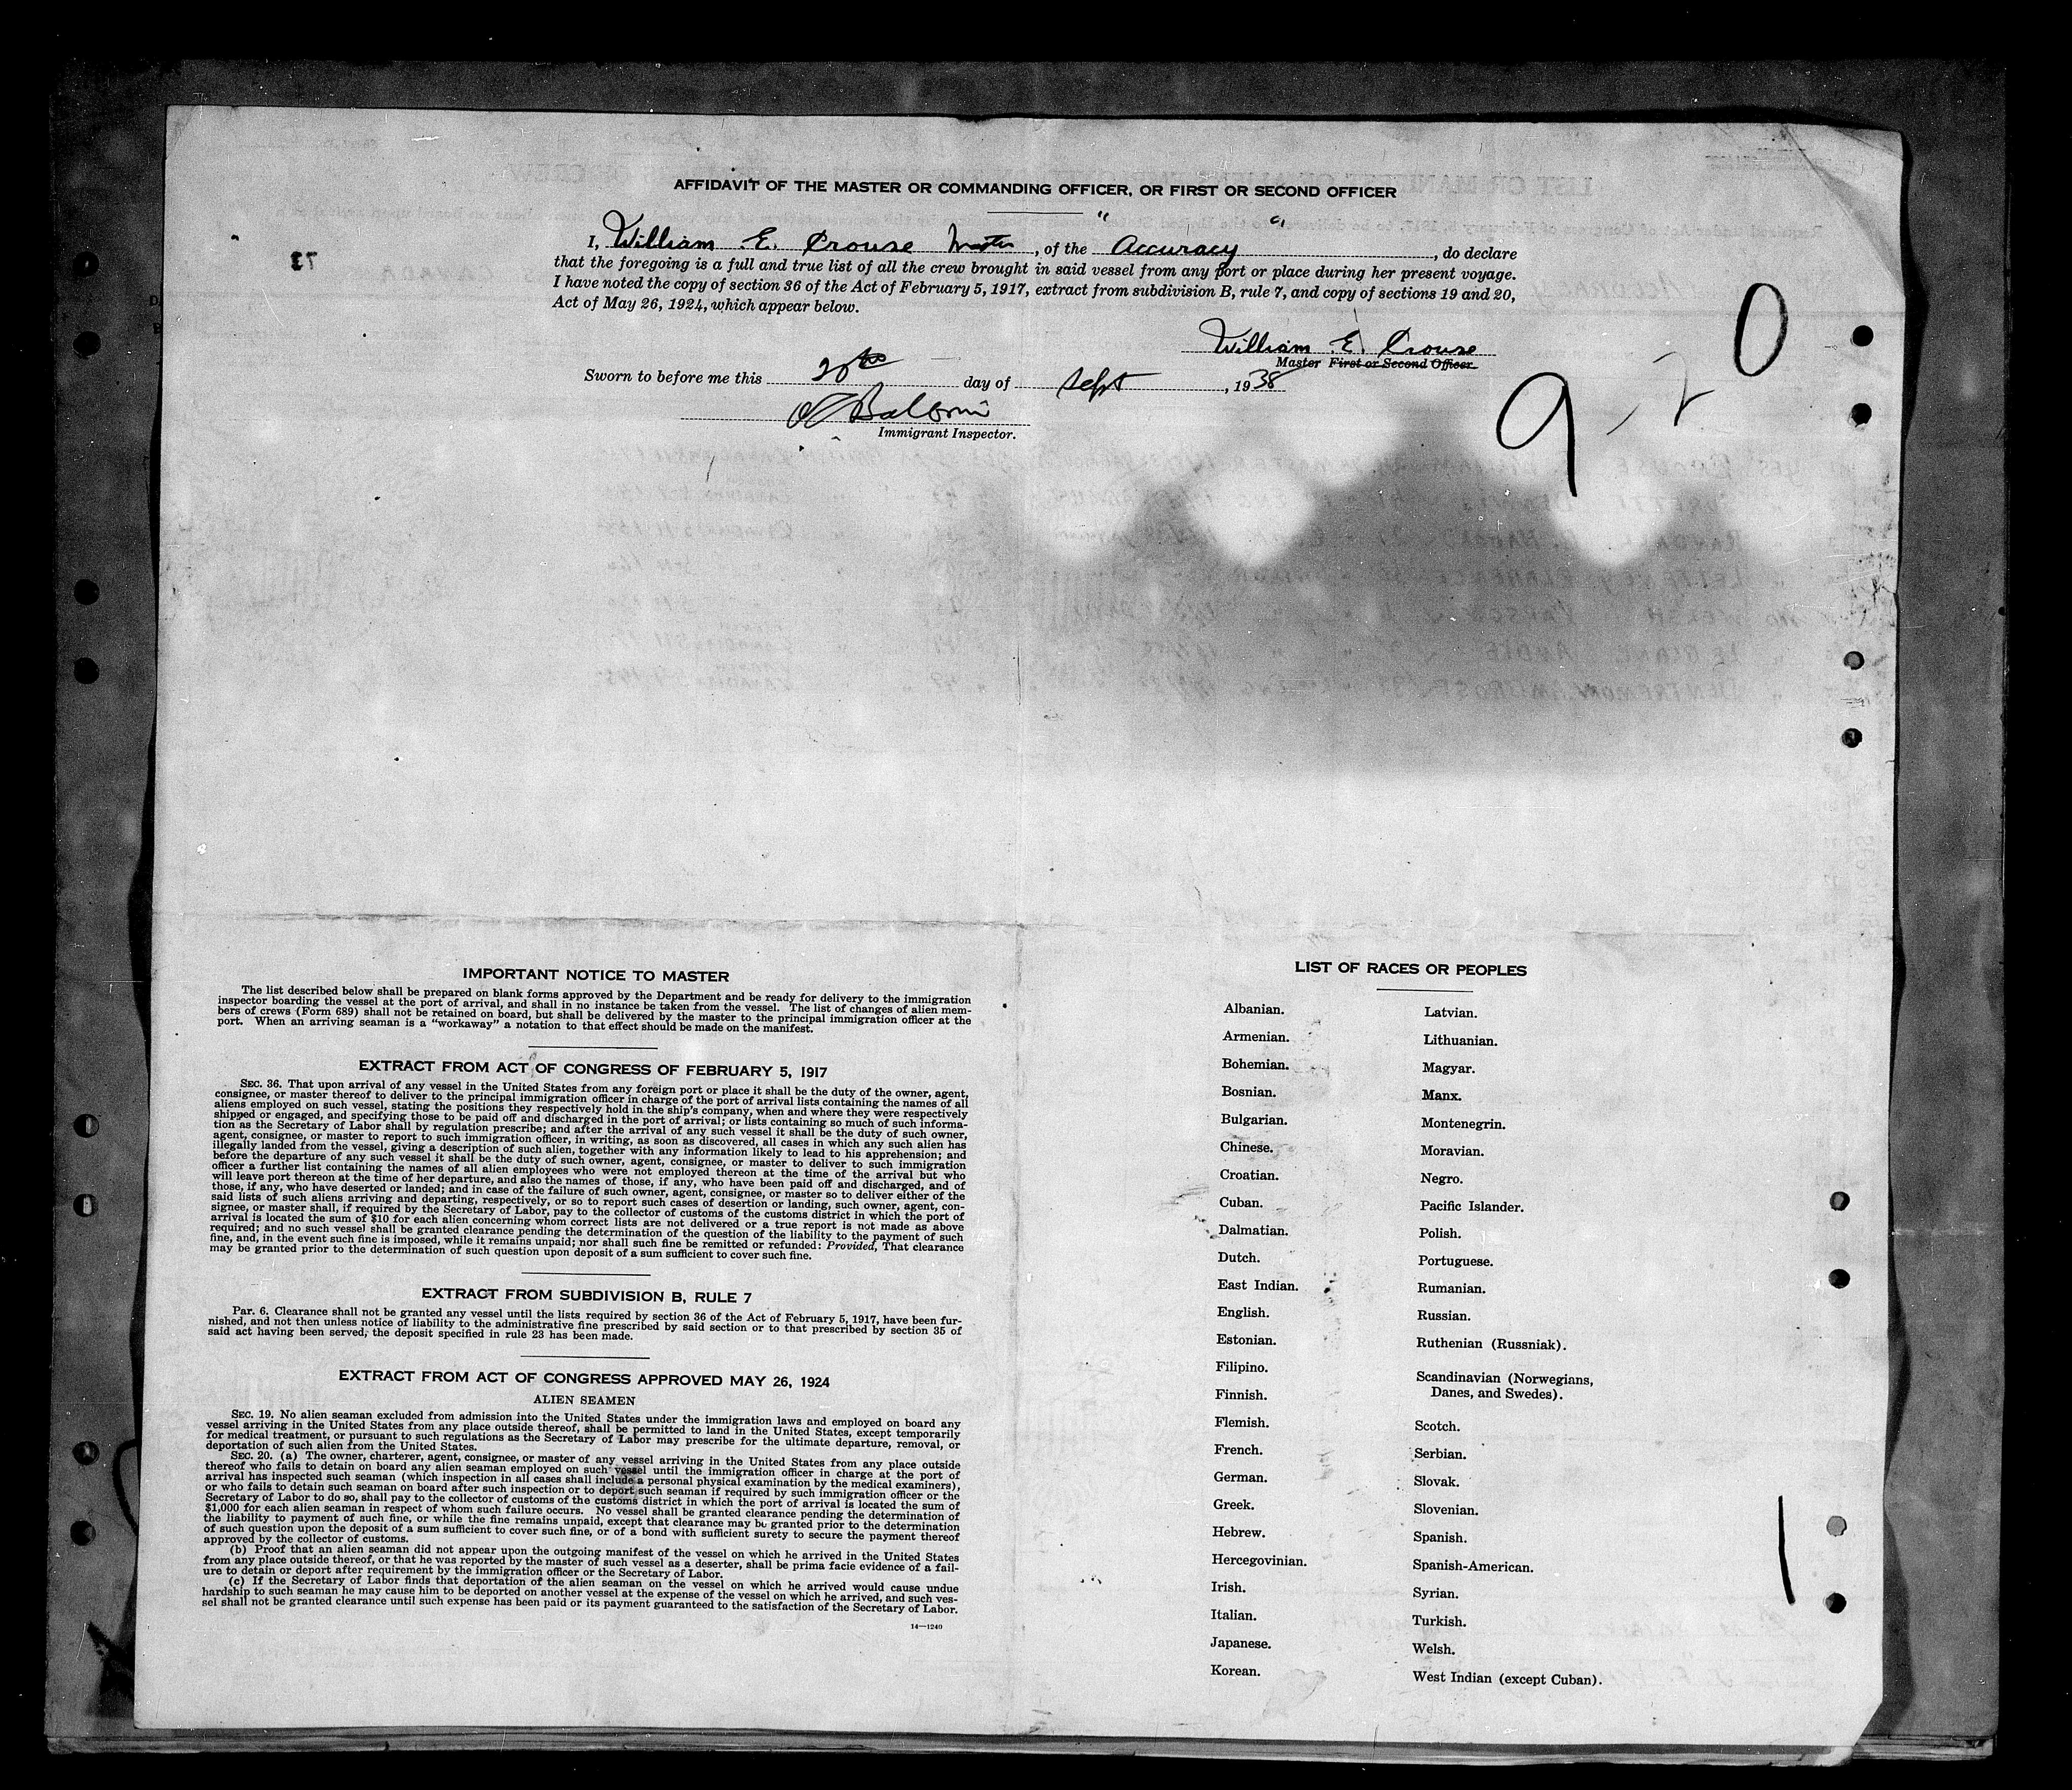 AFFIDAVIT OF THE MASTER OR COMMANDING OFFICER, OR FIRST OR SECOND OFFICER
I, William E. Crouse Master, of the "Accuracy", do declare
that the foregoing is a full and true list of all the crew brought in said vessel from any port or place during her present voyage.
I have noted the copy of section 36 of the Act of February 5, 1917, extract from subdivision B, rule 7, and copy of sections 19 and 20,
Act of May 26, 1924, which appear below.
William E. Crouse
Master First or Second Officer.
Sworn to before me this 20th day of Sept, 1938
Immigrant Inspector.
9-20
IMPORTANT NOTICE TO MASTER
The list described below shall be prepared on blank forms approved by the Department and be ready for delivery to the immigration
inspector boarding the vessel at the port of arrival, and shall in no instance be taken from the vessel. The list of changes of alien mem-
bers of crews (Form 689) shall not be retained on board, but shall be delivered by the master to the principal immigration officer at the
port. When an arriving seaman is a "workaway" a notation to that effect should be made on the manifest.
EXTRACT FROM ACT OF CONGRESS OF FEBRUARY 5, 1917
SEC. 36. That upon arrival of any vessel in the United States from any foreign port or place it shall be the duty of the owner, agent,
consignee, or master thereof to deliver to the principal immigration officer in charge of the port of arrival lists containing the names of all
aliens employed on such vessel, stating the positions they respectively hold in the ship's company, when and where they were respectively
shipped or engaged, and specifying those to be paid off and discharged in the port of arrival; or lists containing so much of such informa-
tion as the Secretary of Labor shall by regulation prescribe; and after the arrival of any such vessel it shall be the duty of such owner,
agent, consignee, or master to report to such immigration officer, in writing, as soon as discovered, all cases in which any such alien has
illegally landed from the vessel, giving a description of such alien, together with any information likely to lead to his apprehension; and
before the departure of any such vessel it shall be the duty of such owner, agent, consignee, or master to deliver to such immigration
officer a further list containing the names of all alien employees who were not employed thereon at the time of the arrival but who
will leave port thereon at the time of her departure, and also the names of those, if any, who have been paid off and discharged, and of
those, if any, who have deserted or landed; and in case of the failure of such owner, agent, consignee, or master so to deliver either of the
said lists of such aliens arriving and departing, respectively, or so to report such cases of desertion or landing, such owner, agent, con-
signee, or master shall, if required by the Secretary of Labor, pay to the collector of customs of the customs district in which the port of
arrival is located the sum of $10 for each alien concerning whom correct lists are not delivered or a true report is not made as above
required; and no such vessel shall be granted clearance pending the determination of the question of the liability to the payment of such
fine, and, in the event such fine is imposed, while it remains unpaid; nor shall such fine be remitted or refunded: Provided, That clearance
may be granted prior to the determination of such question upon deposit of a sum sufficient to cover such fine.
EXTRACT FROM SUBDIVISION B, RULE 7
Par. 6. Clearance shall not be granted any vessel until the lists required by section 36 of the Act of February 5, 1917, have been fur-
nished, and not then unless notice of liability to the administrative fine prescribed by said section or to that prescribed by section 35 of
said act having been served, the deposit specified in rule 23 has been made.
EXTRACT FROM ACT OF CONGRESS APPROVED MAY 26, 1924
ALIEN SEAMEN
SEC. 19. No alien seaman excluded from admission into the United States under the immigration laws and employed on board any
vessel arriving in the United States from any place outside thereof, shall be permitted to land in the United States, except temporarily
for medical treatment, or pursuant to such regulations as the Secretary of Labor may prescribe for the ultimate departure, removal, or
deportation of such alien from the United States.
SEC. 20. (a) The owner, charterer, agent, consignee, or master of any vessel arriving in the United States from any place outside
thereof who fails to detain on board any alien seaman employed on such vessel until the immigration officer in charge at the port of
arrival has inspected such seaman (which inspection in all cases shall include a personal physical examination by the medical examiners),
or who fails to detain such seaman on board after such inspection or to deport such seaman if required by such immigration officer or the
Secretary of Labor to do so, shall pay to the collector of customs of the customs district in which the port of arrival is located the sum of
$1,000 for each alien seaman in respect of whom such failure occurs. No vessel shall be granted clearance pending the determination of
the liability to payment of such fine, or while the fine remains unpaid, except that clearance may be granted prior to the determination
of such question upon the deposit of a sum sufficient to cover such fine, or of a bond with sufficient surety to secure the payment thereof
approved by the collector of customs.
(b) Proof that an alien seaman did not appear upon the outgoing manifest of the vessel on which he arrived in the United States
from any place outside thereof, or that he was reported by the master of such vessel as a deserter, shall be prima facie evidence of a fail-
ure to detain or deport after requirement by the immigration officer or the Secretary of Labor.
(c) If the Secretary of Labor finds that deportation of the alien seaman on the vessel on which he arrived would cause undue
hardship to such seaman he may cause him to be deported on another vessel at the expense of the vessel on which he arrived, and such ves-
sel shall not be granted clearance until such expense has been paid or its payment guaranteed to the satisfaction of the Secretary of Labor.
14—1240
LIST OF RACES OR PEOPLES
Albanian.
Armenian.
Bohemian.
Bosnian.
Bulgarian.
Chinese.
Croatian.
Cuban.
Dalmatian.
Dutch.
East Indian.
English.
Estonian.
Filipino.
Finnish.
Flemish.
French.
German.
Greek.
Hebrew.
Hercegovinian.
Irish.
Italian.
Japanese.
Korean.
Latvian.
Lithuanian.
Magyar.
Manx.
Montenegrin.
Moravian.
Negro.
Pacific Islander.
Polish.
Portuguese.
Rumanian.
Russian.
Ruthenian (Russniak).
Scandinavian (Norwegians,
Danes, and Swedes).
Scotch.
Serbian.
Slovak.
Slovenian.
Spanish.
Spanish-American.
Syrian.
Turkish.
Welsh.
West Indian (except Cuban).